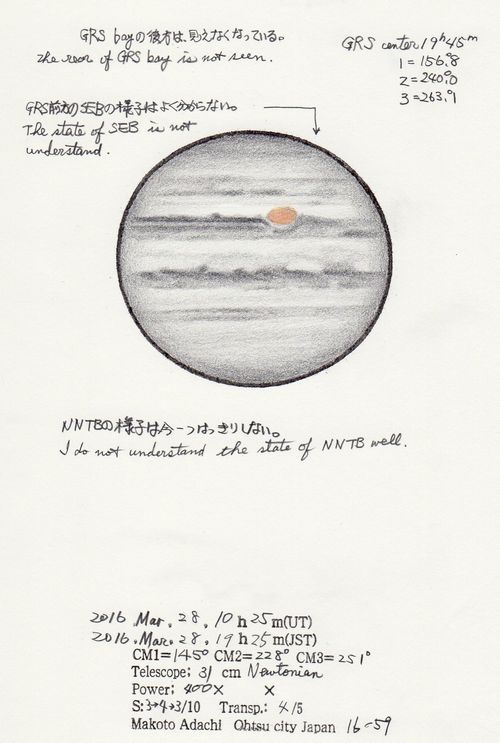 GRS bayの後方は、見えなくなっている。
the rear of GRS bay is not seen.
GRS center 19h45m
1 = 156.°8
2 = 240.°0
3 = 263.°1
GRS前方のSEBの様子はよく分からない。
The state of SEB is not
understand.
NNTBの様子は今一つはっきりしない。
I do not understand the state of NNTB well.
2016 Mar. 28, 10 h 25 m(UT)
2016 Mar. 28, 19 h 25 m(JST)
CM1=145° CM2=228° CM3=251°
Telescope; 31 cm Newtonian
Power; 400× ×
S:3→4→3/10 Transp.; 4/5
Makoto Adachi Ohtsu city Japan 16-59